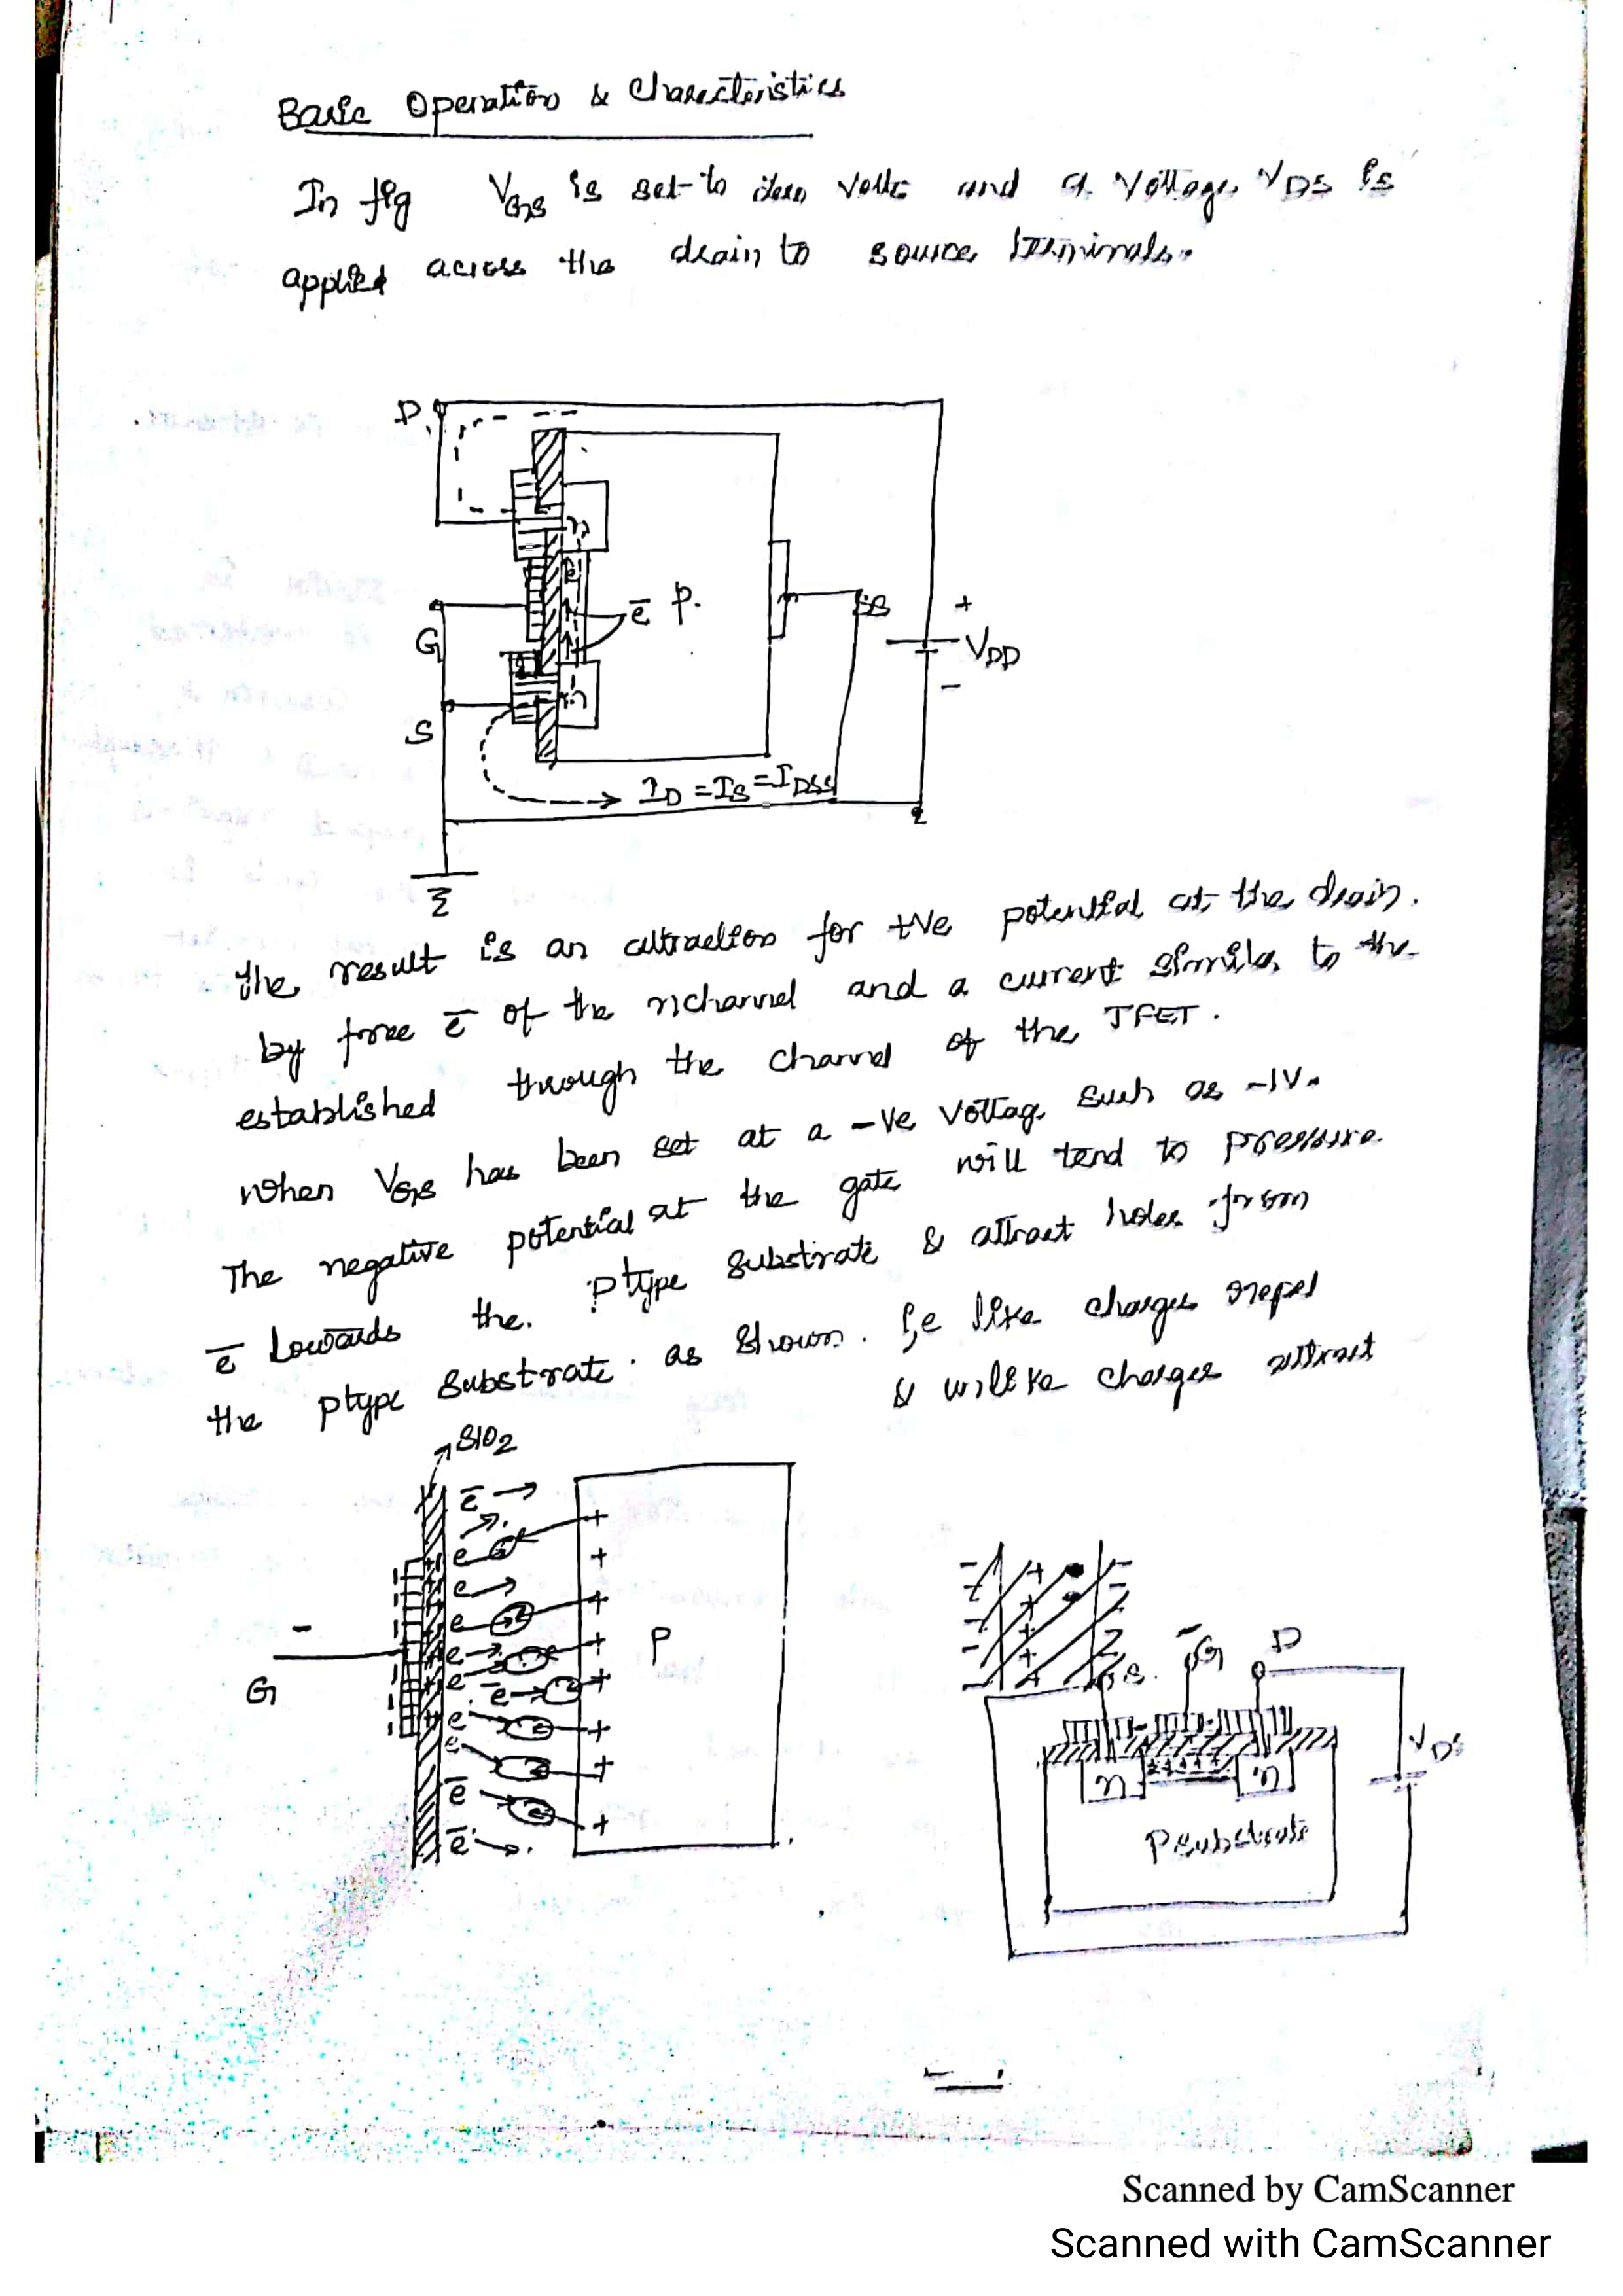 Basic Operation & Charecteristics
In fig VGS is set to zero volts and a voltage VDS is
applied across the drain to source terminals.
D
n
ē P.
G
SB
+
VDD
-
S
n
ID = IS = IDSS
the result is an attraction for +ve potential at the drain.
by free ē of the nchannel and a current similar to the
established through the channel of the JFET.
When VGS has been set at a -ve voltage such as -1V.
The negative potential at the gate will tend to pressure
ē towards the. Ptype substrate & attract holes from
the ptype substrate. as shown. i,e like charges repel
& unlike charges attract
SiO2
ē
e
e
e
e
e
ē
e
e
ē
ē
+
+
+
+
+
+
+
+
P
-
G
S.
-
G
D
n
n
VDS
Psubstrate
Scanned by CamScanner
Scanned with CamScanner